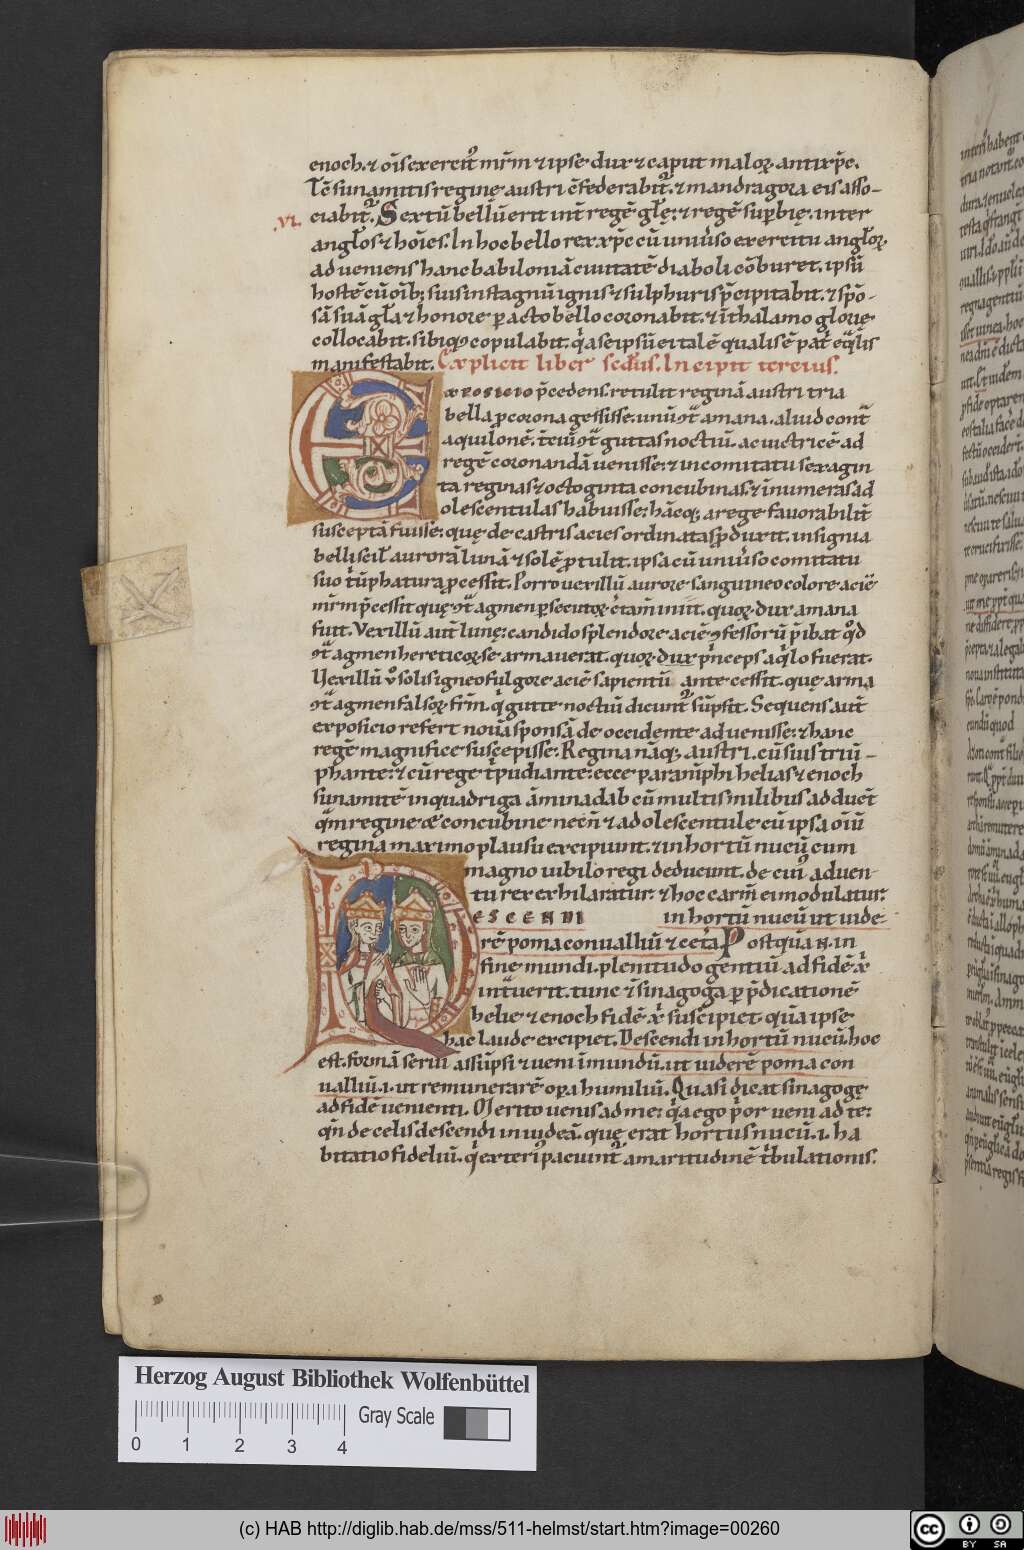 enoch. & oīs exercit᷒ mr̄m & ipse dux & caput maloꝝ antixp̄c.
Tē sunamitis regine austri c̄federabit᷒. & mandragora eis asso-
.vi. ciabit᷒. Sextū bellū erit int̄ regē gl̄ę: & regē sup̄bię. inter
angl̄os & hoīes. In hoc bello rex xp̄c cū uniūso exercitu angl̄oꝝ.
adueniens hanc babiloniā ciuitatē diaboli cōburet. ipsū
hostē cū oīb; suis in stagnū ignis & sulphuris p̄cipitabit. & spō-
sā suā gl̄a & honore ꝑacto bello coronabit. & ī thalamo glorię
collocabit. sibiq; copulabit. q̇a se ipsū ei talē qualis ē pat̄ eq̄lis
manifestabit. Explicit liber sc̄dus. Incipit tercius.
Exposicio p̄cedens. retulit reginā austri tria
bella ꝓ corona gessisse. unū 9t̄ amana. aliud cont̄
aquilonē. t̄ciū 9t̄ guttas noctiū. ac uictricē ad
regē coronandā uenisse. & in comitatu sexagin
ta reginas & octoginta concubinas. & īnumeras ad
olescentulas habuisse. hācq; a rege fauorabilit̄
susceptā fuisse. quę de castris acies ordinatas ꝓduxit. insignia
belli scil̄ aurorā lunā & solē ꝓtulit. ipsa cū uniūso comitatu
suo t̄ūphatura ꝓcessit. Porro uexillū aurore sanguineo colore aciē
mr̄m p̄cessit quę 9t̄ agmen ꝑsecutoꝝ c̄tam̄ iniit. quoꝝ dux amana
fuit. Vexillū aut̄ lunę: candido splendore aciē 9fessorū p̄ibat q̊d
9t̄ agmen hereticoꝝ se armauerat. quoꝝ dux p̄nceps aq̇lo fuerat.
Vexillū ů solis igneo fulgore aciē sapientū antecessit. quę arma
9t̄ agmen falsoꝝ fr̄m. q̇ gutte noctiū dicunt᷒ sūpsit. Sequens aut̄
exposicio refert nouā sponsā de occidente aduenisse. & hanc
regē magnifice suscepisse. Regina nāq; austri. cū suis triū-
phante. & cū rege t̄pudiante. ecce paranīphi helias & enoch
sunamitē in quadriga āminadab cū multis milibus adduct̄
q̄m regine & concubine necn̄ & adolescentule cū ipsa oīū
regina maximo plausu excipiunt. & in hortū nucū cum
magno iubilo regi deducunt. de cui᷒ aduen-
tu rex exhilaratur. & hoc carm̄ ei modulatur.
DESCENDI in hortū nucū ut uide
rē poma conualliū & cet̄a. Postquā n. in
fine mundi. plenitudo gentiū ad fidē xi
int̄uerit. tunc & sinagoga ꝑ p̄dicationē
helie & enoch fidē xi suscipiet quā ipse
hac laude excipiet. Descendi in hortū nucū. hoc
est. formā serui assūpsi & ueni ī mundū. ut uiderē poma con
ualliū .i. ut remunerarē oꝑa humiliū. Quasi dicat sinagogę
ad fidē uenienti. Merito uenis ad me: q̇a ego p̄or ueni ad te:
qn̄ de celis descendi in iudeā. quę erat hortus nucū .i. ha
bitatio fideliū. q̇ exteri᷒ paciunt᷒ amaritudinē t̄bulationis.
Herzog August Bibliothek Wolfenbüttel
Gray Scale
0 1 2 3 4
(c) HAB http://diglib.hab.de/mss/511-helmst/start.htm?image=00260
cc BY SA